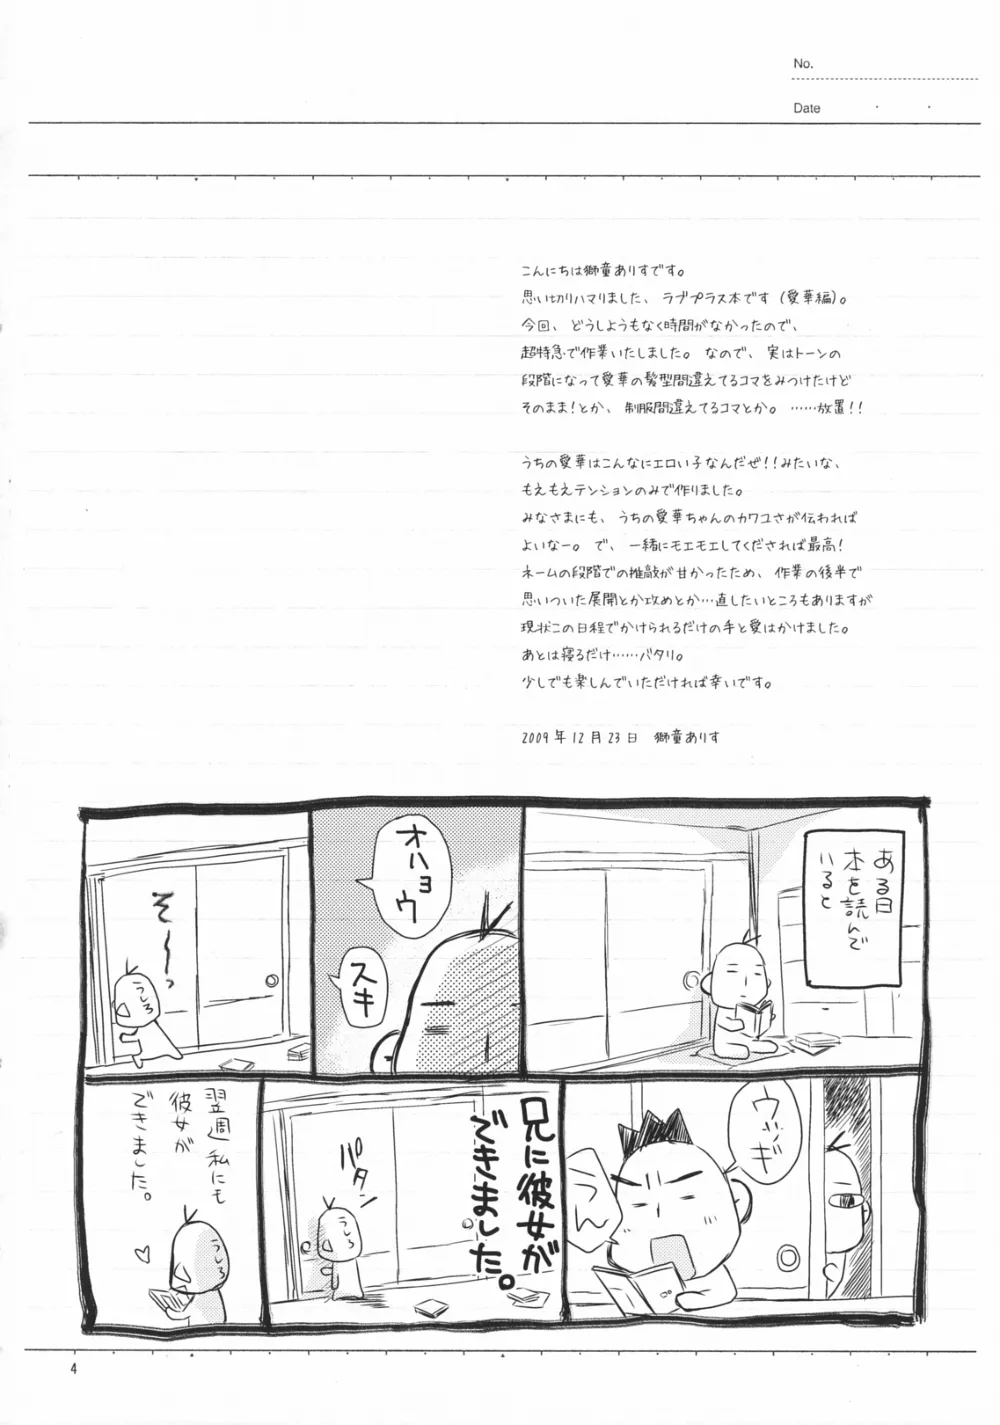 No.
Date
こんにちは獅童ありすです。
思い切りハマりました、ラブプラス本です（愛華編）。
今回、どうしようもなく時間がなかったので、
超特急で作業いたしました。なので、実はトーンの
段階になって愛華の髪型間違えてるコマをみつけたけど
そのまま！とか、制服間違えてるコマとか。……放置！！
うちの愛華はこんなにエロい子なんだぜ！！みたいな、
もえもえテンションのみで作りました。
みなさまにも、うちの愛華ちゃんのカワユさが伝われば
よいなー。で、一緒にモエモエしてくだされば最高！
ネームの段階での推敲が甘かったため、作業の後半で
思いついた展開とか攻めとか…直したいところもありますが
現状この日程でかけられるだけの手と愛はかけました。
あとは寝るだけ……バタリ。
少しでも楽しんでいただければ幸いです。
2009年12月23日　獅童ありす
ある日
本を読んで
いると
オハョウ
スキ
そ〜っ
うしろ
ウッンギ
うん
兄に彼女が
できました。
パタン
うしろ
翌週私にも
彼女が
できました。
うしろ
4